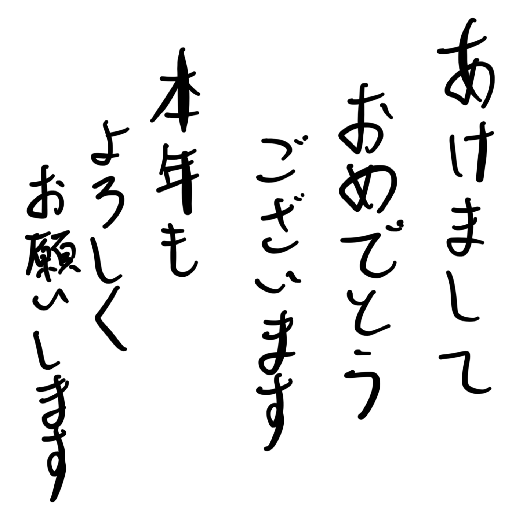 あけまして
おめでとう
ございます
本年も
よろしく
お願いします